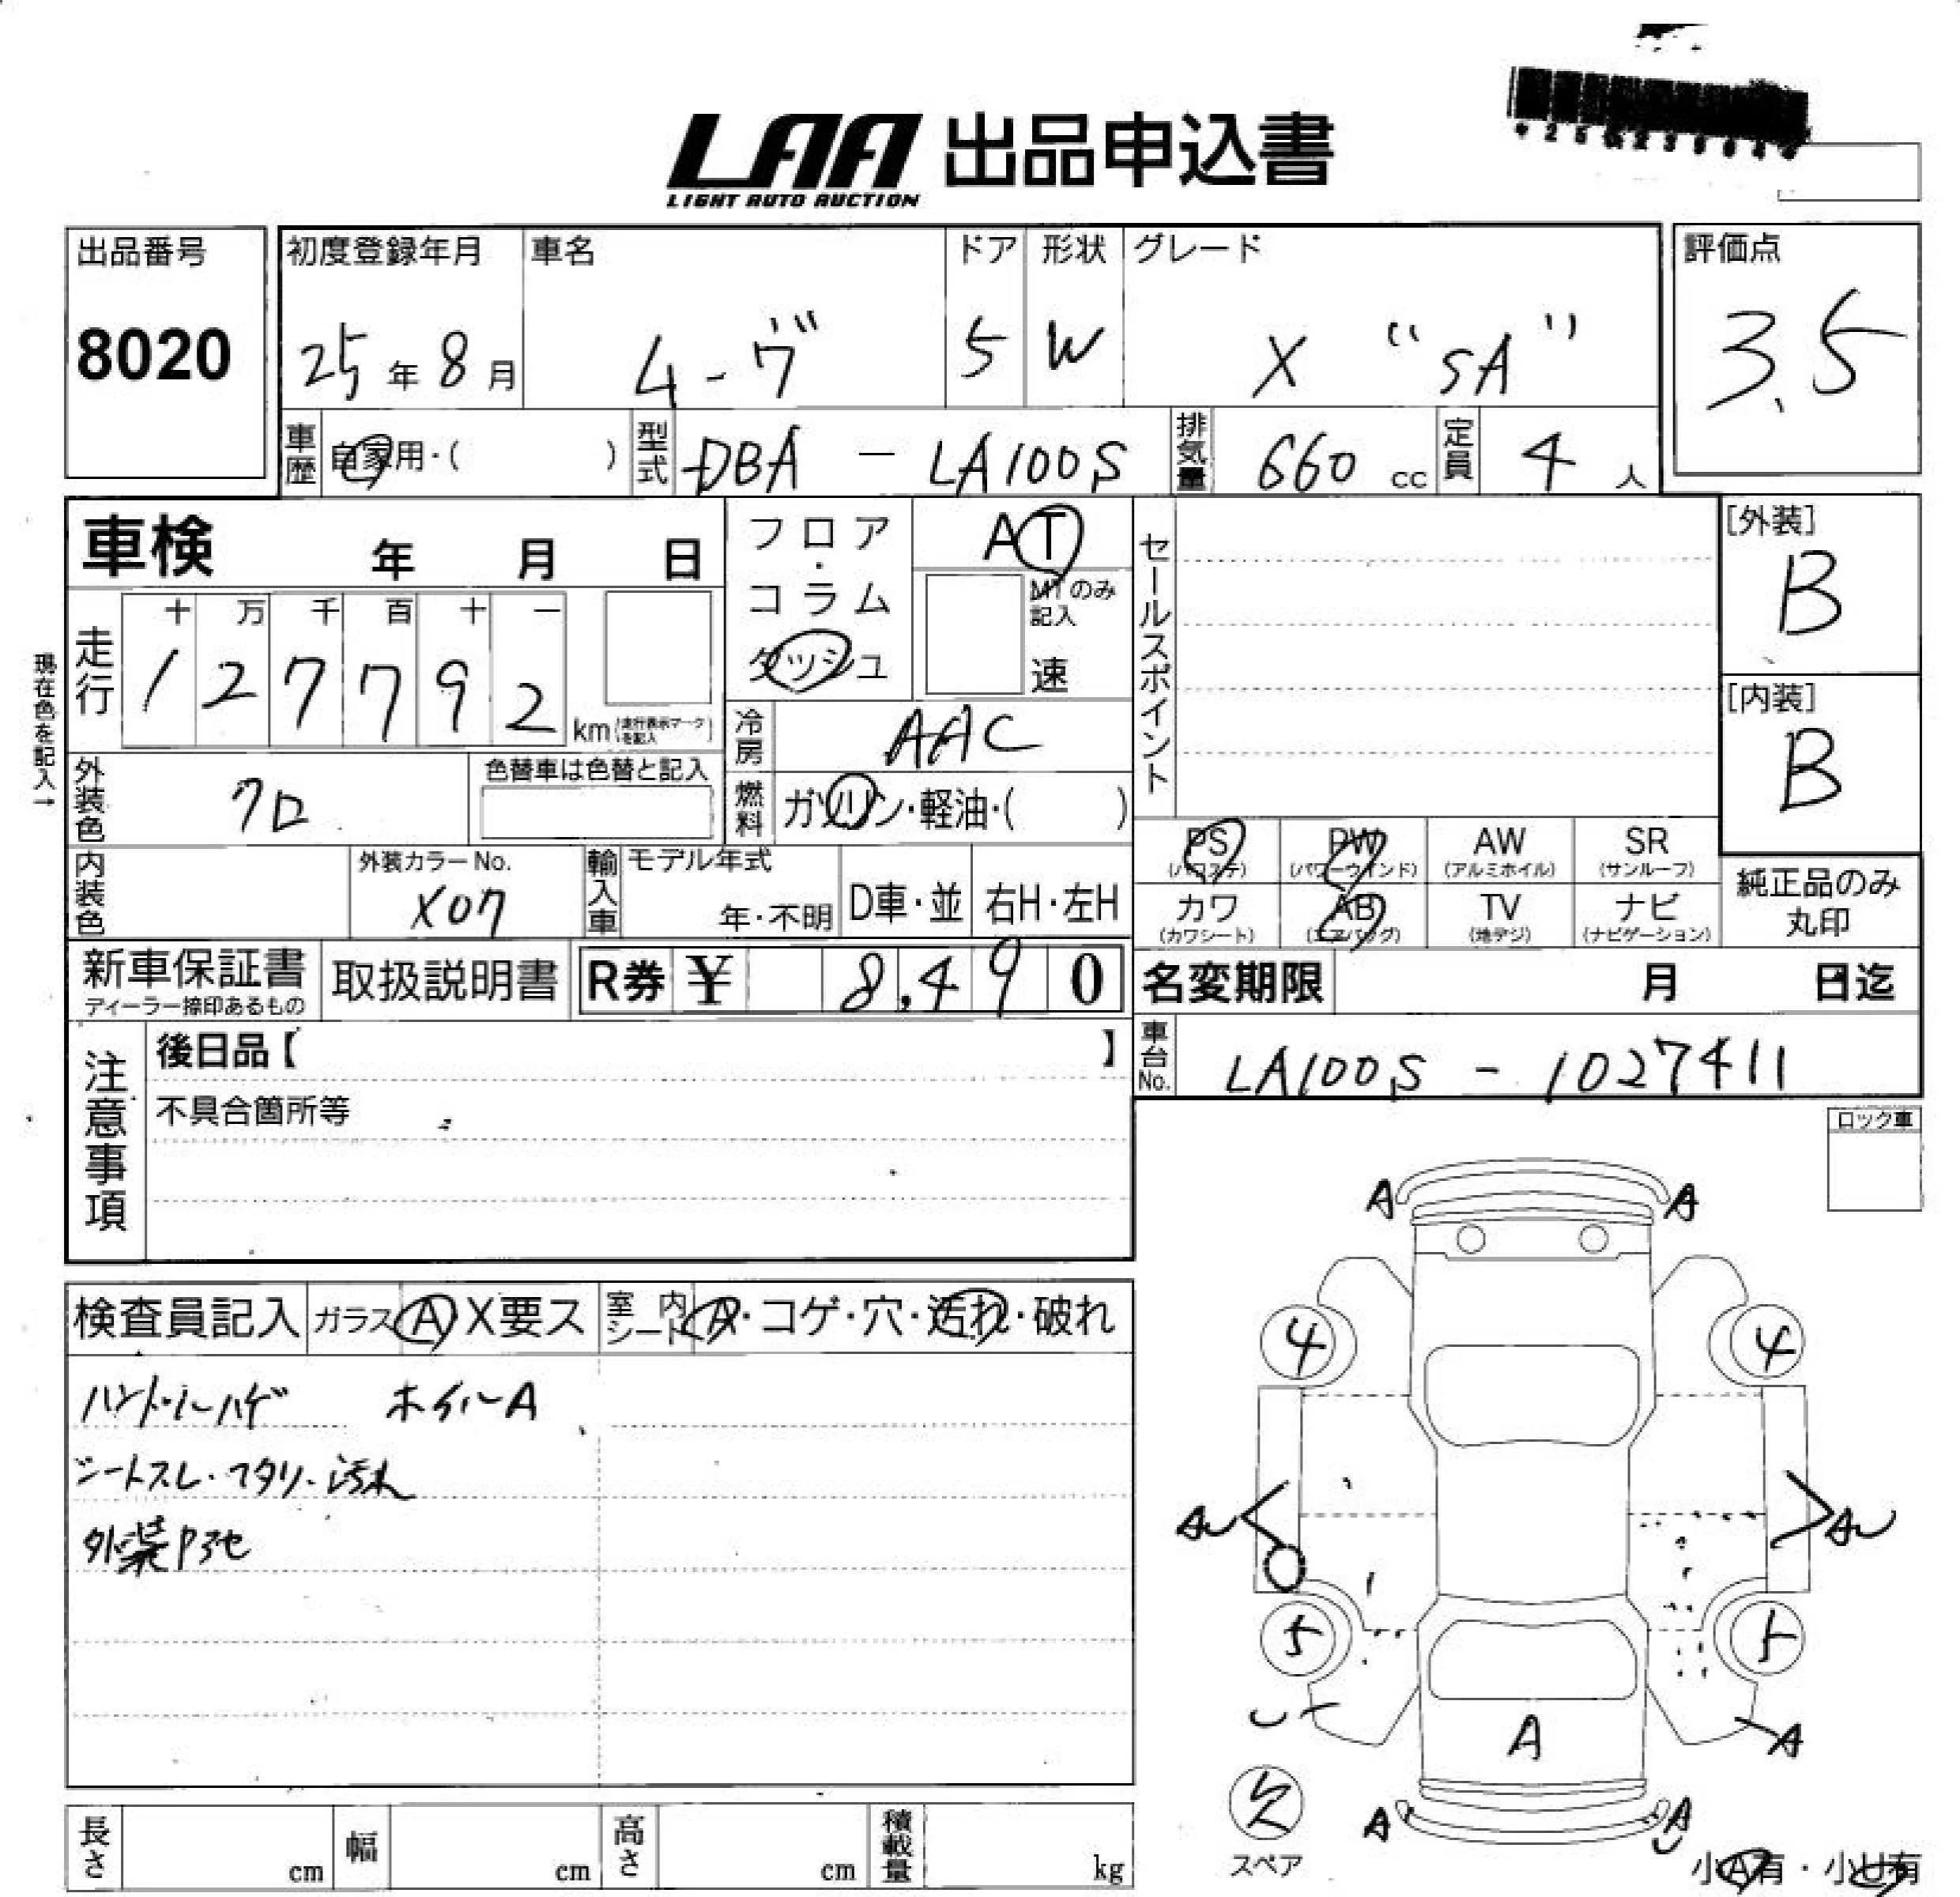 LAA 出品申込書
LIGHT AUTO AUCTION
出品番号 初度登録年月 車名 ドア 形状 グレード 評価点
8020 25年8月 ムーヴ 5 W X "SA" 3.5
車歴 自家用・( ) 型式 DBA - LA100S 排気量 660 cc 定員 4 人
車検 年 月 日 フロア・コラム ダッシュ AT セールスポイント [外装]
B
MTのみ記入 速
十 万 千 百 十 一
走行 1 2 7 7 9 2 km (走行表示マークを記入)
現在色を記入→
[内装]
B
冷房 AAC
外装色 クロ 色替車は色替と記入 燃料 ガソリン・軽油・( )
PS (パワステ) PW (パワーウインド) AW (アルミホイル) SR (サンルーフ)
内装色 外装カラーNo. X07 輸入車 モデル年式 年・不明 D車・並 右H・左H
カワ (カワシート) AB (エアバッグ) TV (地デジ) ナビ (ナビゲーション) 純正品のみ丸印
新車保証書 ディーラー捺印あるもの 取扱説明書 R券 ¥ 8,490 名変期限 月 日迄
注意事項 後日品【 】 車台No. LA100S - 1027411
不具合箇所等
ロック車
検査員記入 ガラス A X要ス 室内シート A・コゲ・穴・汚れ・破れ
ハンドルハゲ ホイルA
シートスレ・ヘタリ・汚れ
外装
A A
4 4
AU AU
5 5
A A
A A
欠
スペア
小A有・小U有
長さ cm 幅 cm 高さ cm 積載量 kg